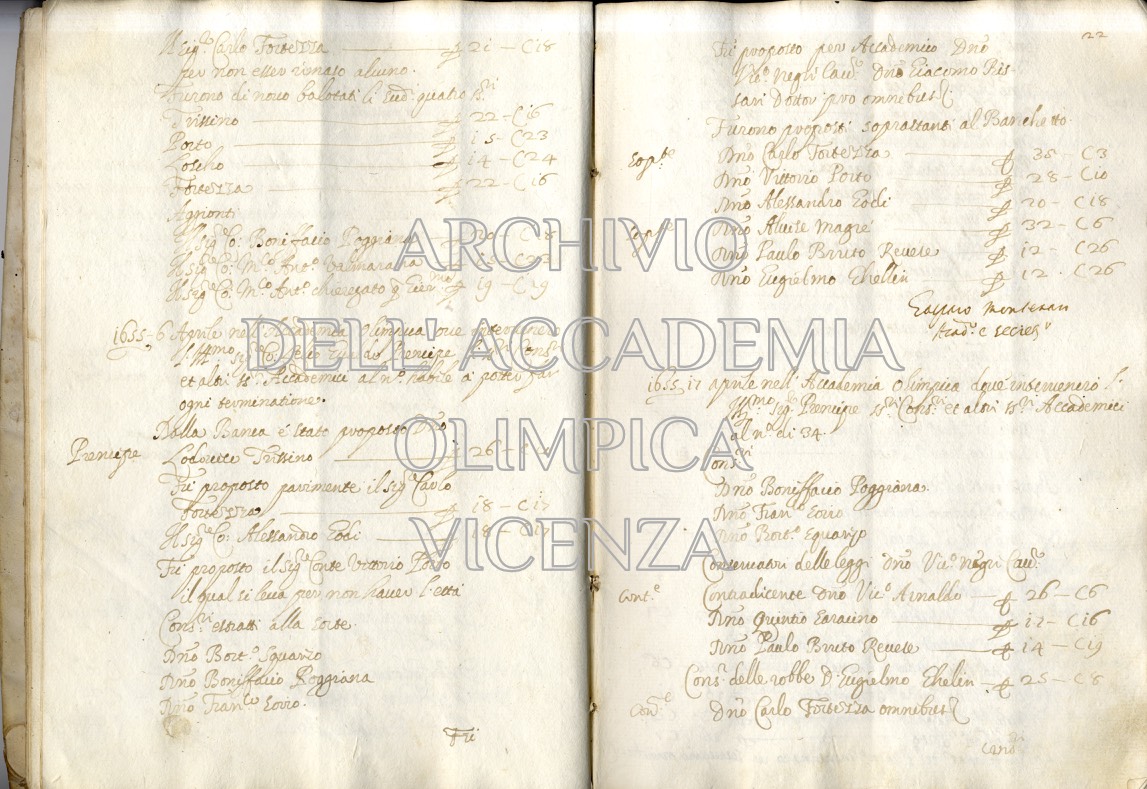 Il sig.r Carlo Fortezza ——— P 21 – C 18
per non esser rimasto alcuno.
Furono di novo balotati li sud.i quatro ss.ri
Trissino ——— P 22 – C 16
Porto ——— P 15 – C 23
Loscho ——— P 14 – C 24
Fortezza ——— P 22 – C 16
Agionti
Il sig.r Co: Boniffacio Poggiana
Il sig.r Co: M.c Ant.o Valmarana
Il sig.r Co: M.c Ant.o Chieregato P 19 – C 19
1655 – 6 Aprile nell'Accademia Olimpica
Prencipe ss.ri Cons.ri
et altri ss.ri Accademici al n.o habile a potter far
ogni terminatione.
Dalla Banca è stato proposto Dno
Prencipe Lodovico Trissino ——— P 26
Fù proposto parimente il sig.r Carlo
Fortezza ——— P 18 – C 17
Il sig.r Co: Alessandro Godi ——— P 18 – C 17
Fù proposto il sig.r Conte Vittorio Porto
il qual si leva per non haver l'età
Cons.ri estratti alla sorte
Dno Bort.o Squarzo
Dno Boniffacio Poggiana
Dno Fran.co Gorro.
Fù
22
Fù proposto per Accademico Dno
Vic.o Negri Cav.r Dno Giacomo Pis-
sari Dottor pro omnibus
Furono proposti soprastanti al Banchetto.
Sop.te Dno Carlo Fortezza ——— P 35 – C 3
Dno Vittorio Porto ——— P 28 – C 10
Dno Alessandro Godi ——— P 20 – C 18
Sop.te Dno Alvise Magrè ——— P 32 – C 6
Dno Paulo Brutto Revese ——— P 12 – C 26
Dno Guglielmo Ghellin ——— P 12 – C 26
Gasparo Monteran
Acad.o e Secret.o
1655 17 Aprile nell'Accademia Olimpica dove intervenero l'
Ill.mo Sig.r Prencipe ss.ri Cons.ri et altri ss.ri Accademici
al n.o di 34.
Cons.ri
Dno Boniffacio Poggiana
Dno Fran.co Gorro
Dno Bort.o Squarzo
Conservatori delle leggi Dno Vic.o Negri Cav.r
Cont.e Contradicente Dno Vic.o Arnaldo — P 26 – C 6
Dno Quintio Saracino ——— P 17 – C 16
Dno Paulo Brutto Revese ——— P 14 – C 19
Cons.r delle robbe D. Guglielmo Ghelin — P 25 – C 8
Con.r Dno Carlo Fortezza omnibus
ARCHIVIO
DELL'ACCADEMIA
OLIMPICA
VICENZA